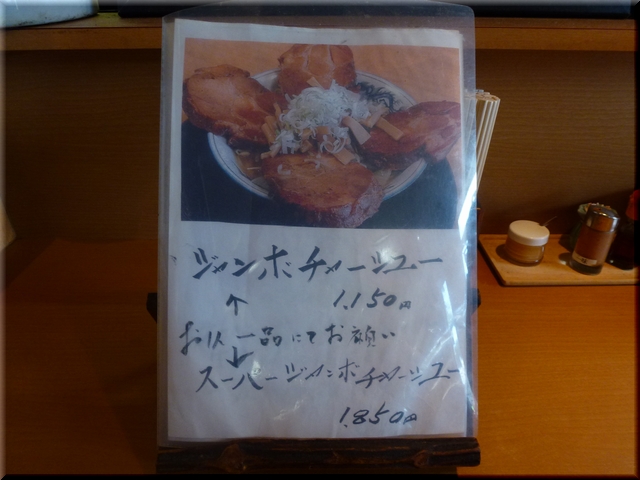 ジャンボチャーシュー
↑ 1,150円
お1人一品にてお願い
↓
スーパージャンボチャーシュー
1,850円